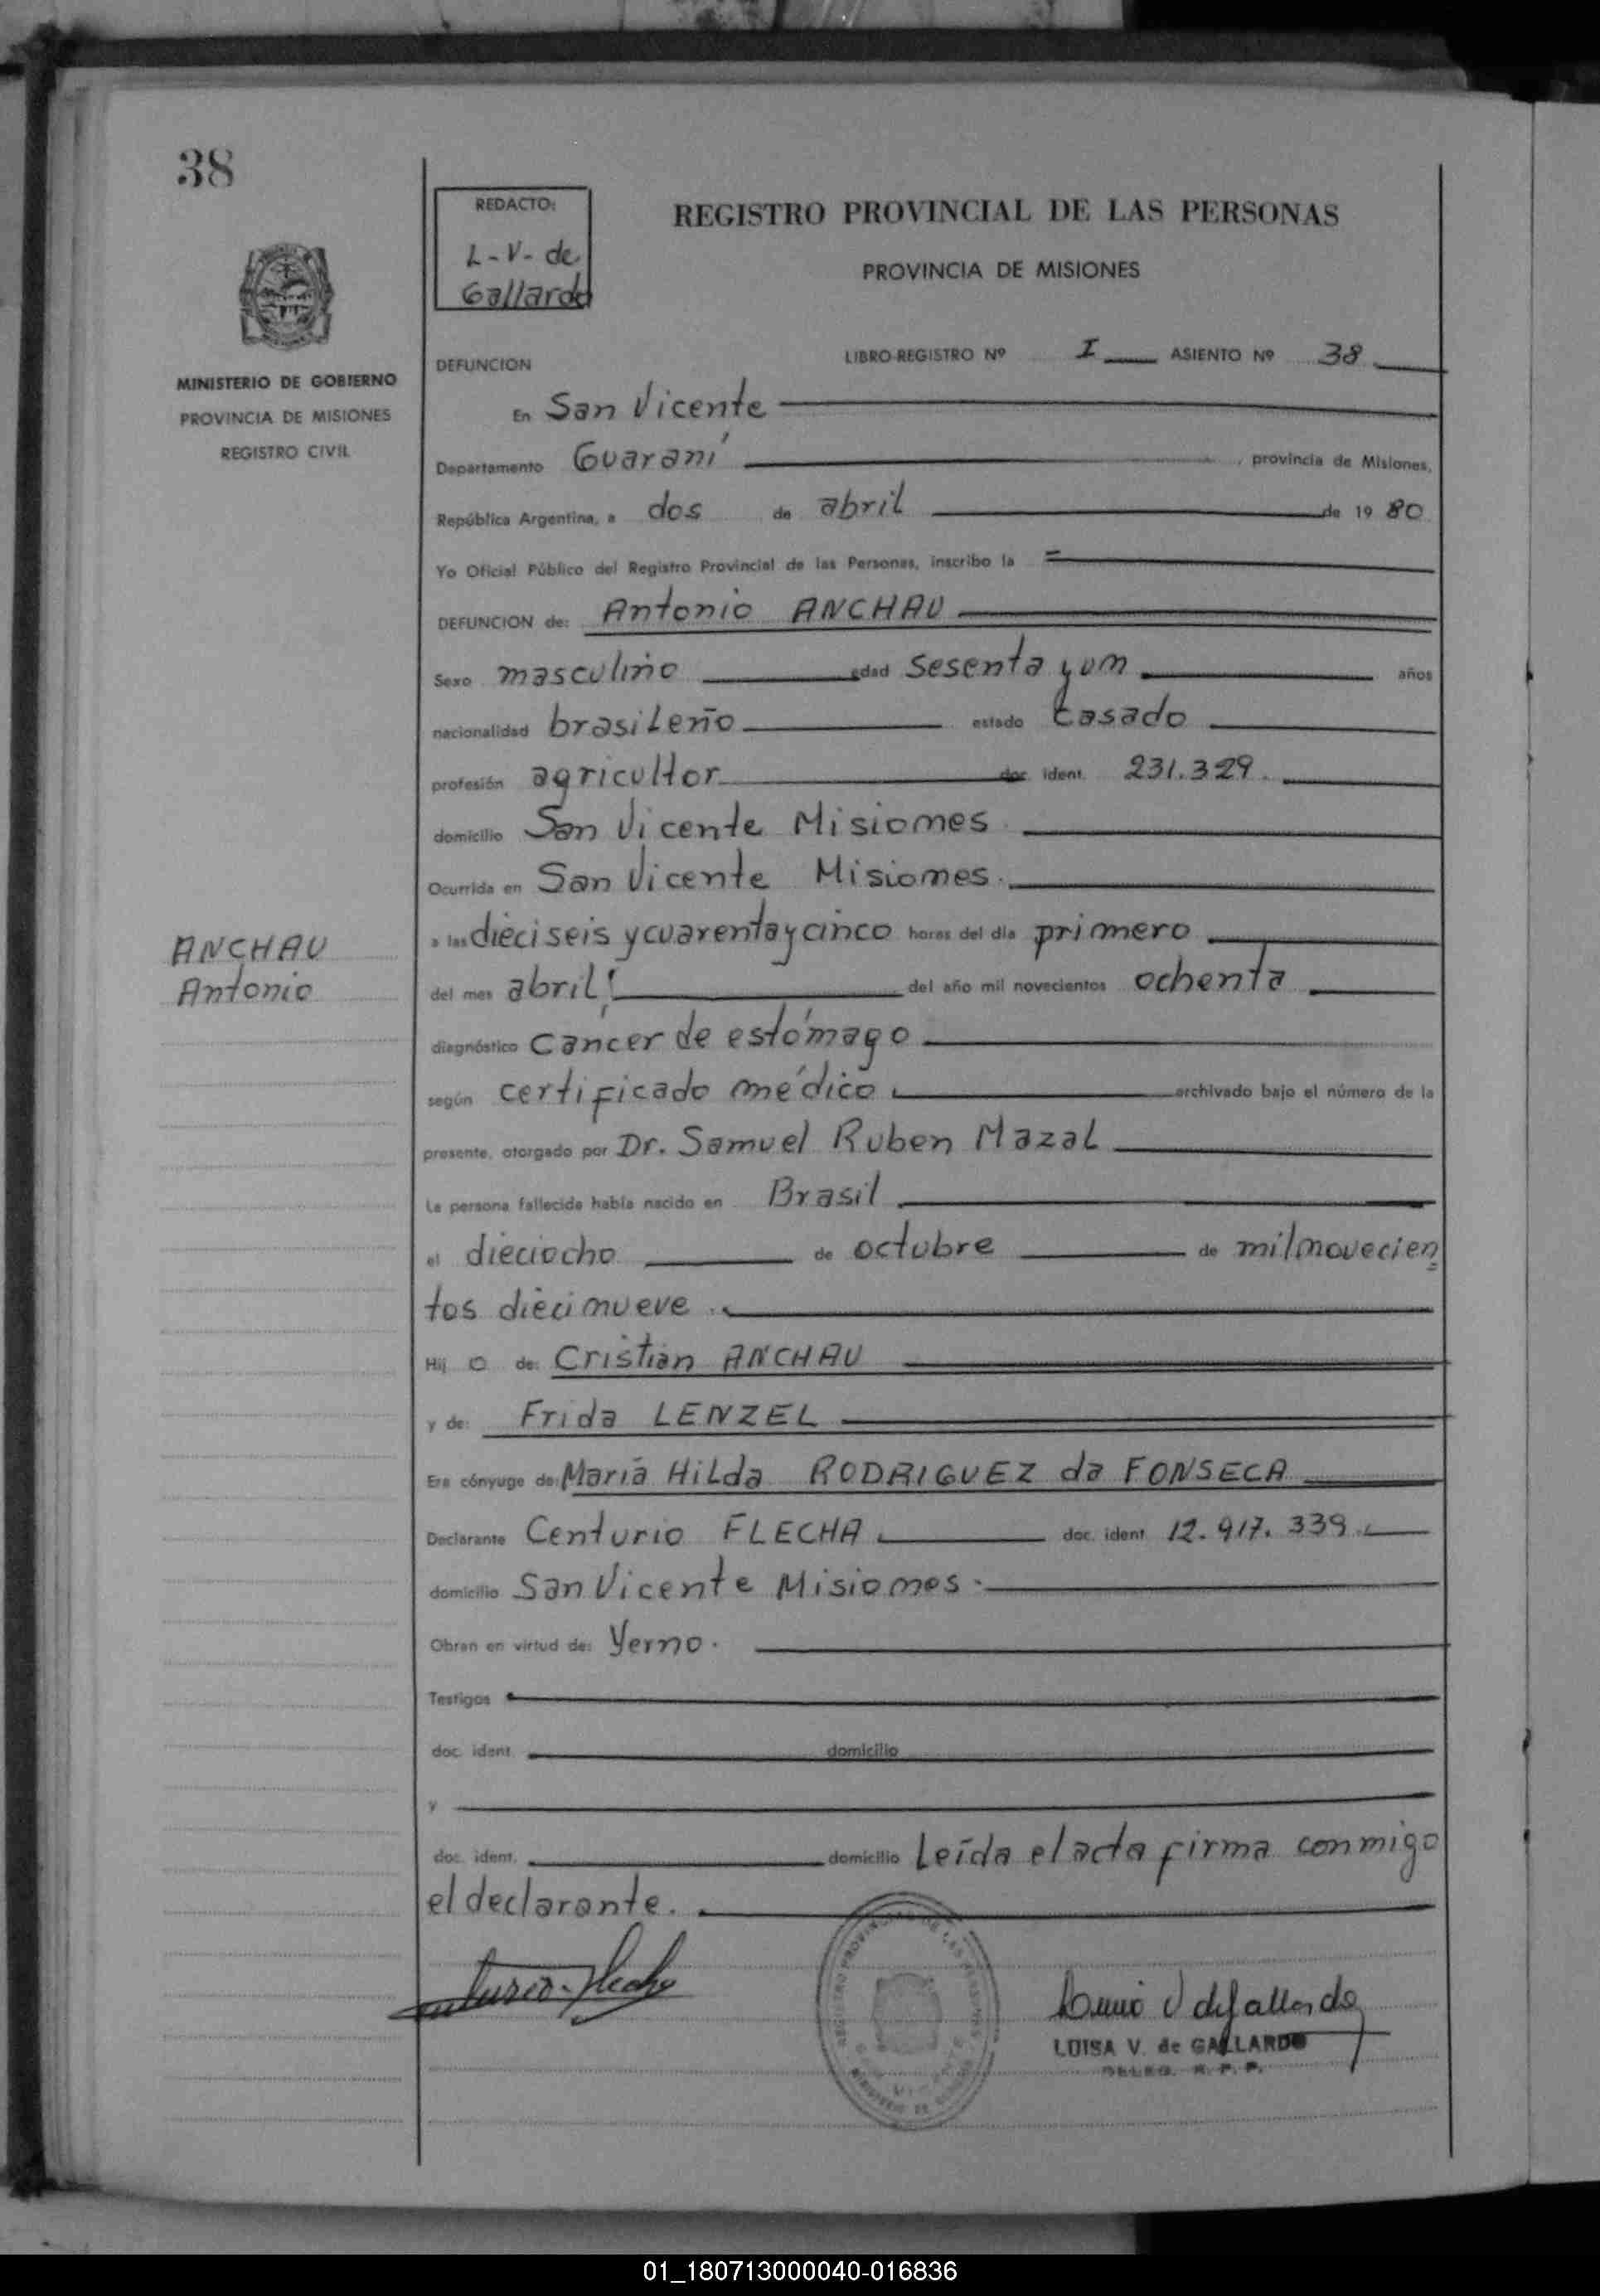 38
REDACTO:
L-V- de
Gallardo
REGISTRO PROVINCIAL DE LAS PERSONAS
PROVINCIA DE MISIONES
MINISTERIO DE GOBIERNO
PROVINCIA DE MISIONES
REGISTRO CIVIL
DEFUNCION LIBRO-REGISTRO Nº I ASIENTO Nº 38
En San Vicente
Departamento Guaraní , provincia de Misiones,
República Argentina, a dos de abril de 19 80
Yo Oficial Público del Registro Provincial de las Personas, inscribo la
DEFUNCION de: Antonio ANCHAU
Sexo masculino edad sesenta y un años
nacionalidad brasileño estado casado
profesión agricultor doc. ident. 231.329.
domicilio San Vicente Misiones
Ocurrida en San Vicente Misiones.
a las dieciseis y cuarenta y cinco horas del día primero
ANCHAU
Antonio
del mes abril del año mil novecientos ochenta
diagnóstico cáncer de estómago
según certificado médico archivado bajo el número de la
presente, otorgado por Dr. Samuel Ruben Mazal
La persona fallecida había nacido en Brasil
el dieciocho de octubre de milnovecien
tos diecinueve.
Hij o de: Cristian ANCHAU
y de: Frida LENZEL
Era cónyuge de: María Hilda RODRIGUEZ da FONSECA
Declarante Centurio FLECHA doc. ident. 12.917.339.
domicilio San Vicente Misiones.
Obran en virtud de: Yerno.
Testigos
doc. ident. domicilio
y
doc. ident. domicilio Leída el acta firma conmigo
el declarante.
LUISA V. de GALLARDO
DELEG. R. P. P.
01_180713000040-016836